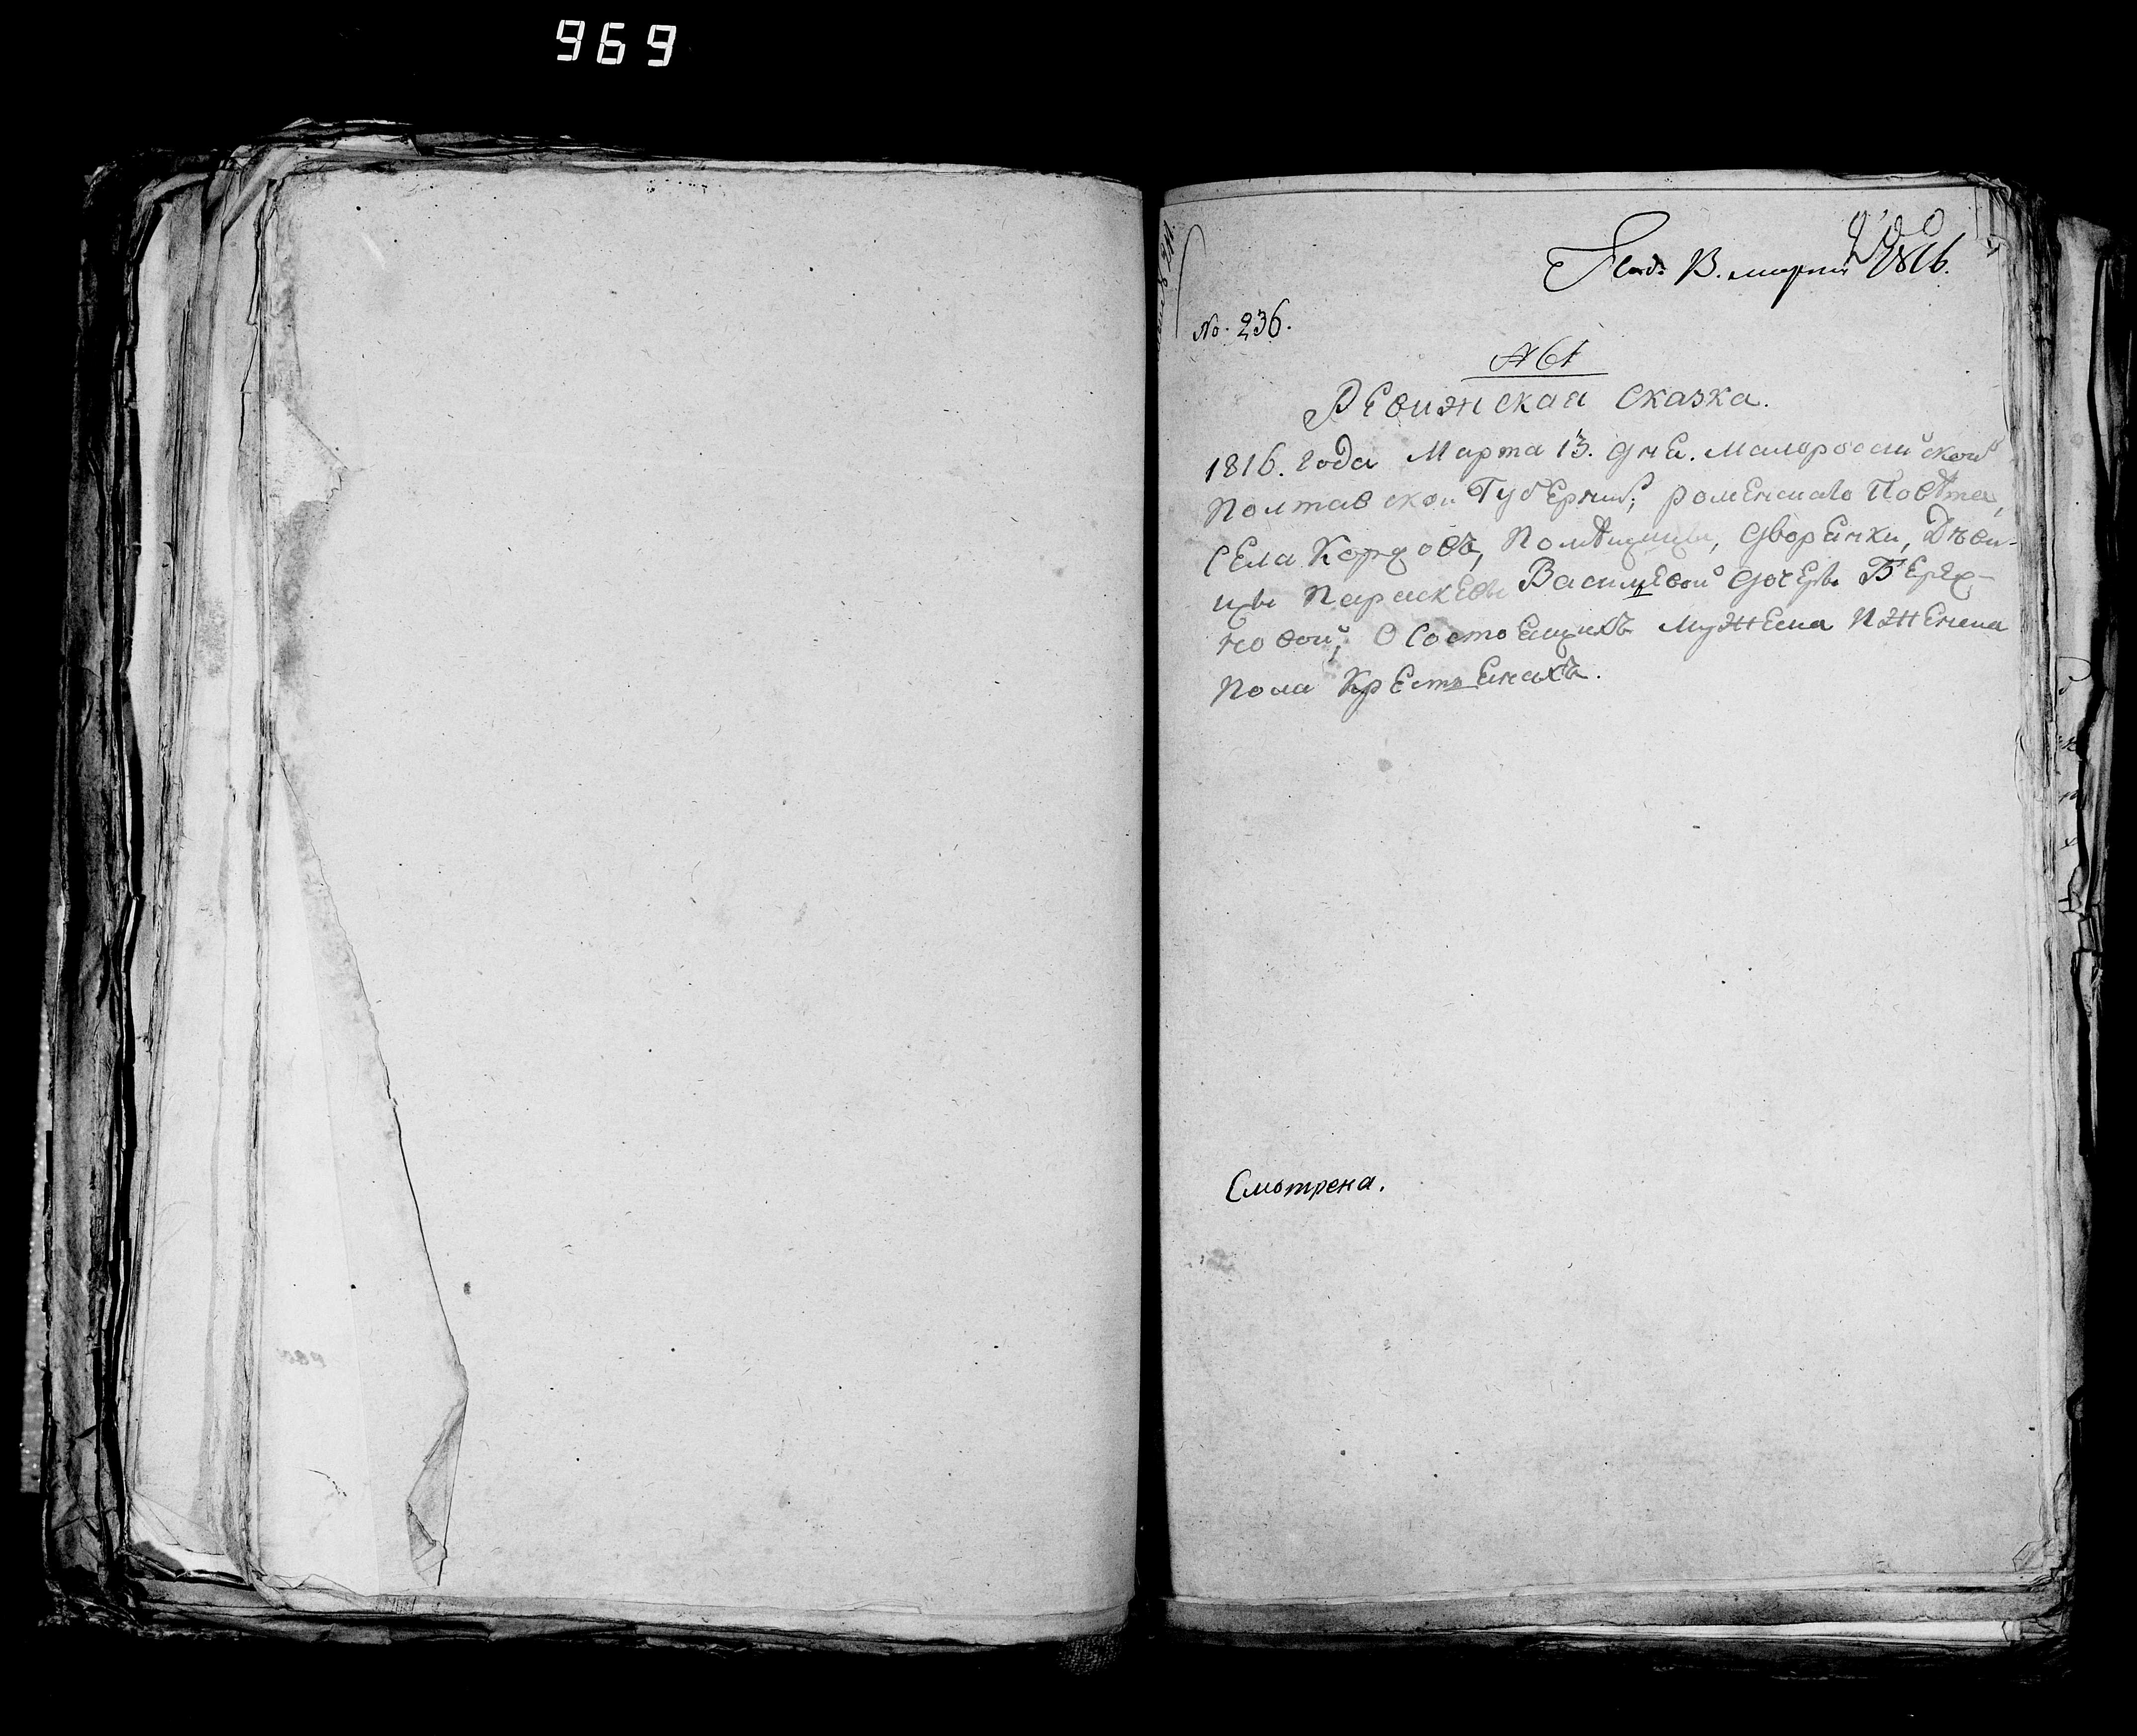 969
13. марта 1816.
No. 236.
№ 61
Ревижская сказка.
1816. года Марта 13. дня. Малороссийской
Полтавской Губернии, роменскаго Повѣта,
села Коровъ, Помѣщицы, дворянки, Дѣви-
цы Параскевы Васильевой дочери Берех-
новой, О Состоящихъ мужеска Иженска
Пола Крестьянахъ.
Смотрена.